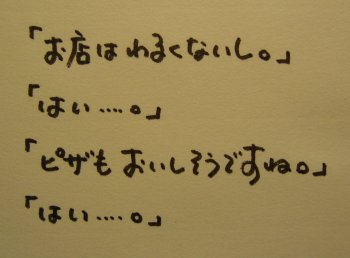 「お店はわるくないし。」
「はい....。」
「ピザもおいしそうですね。」
「はい....。」